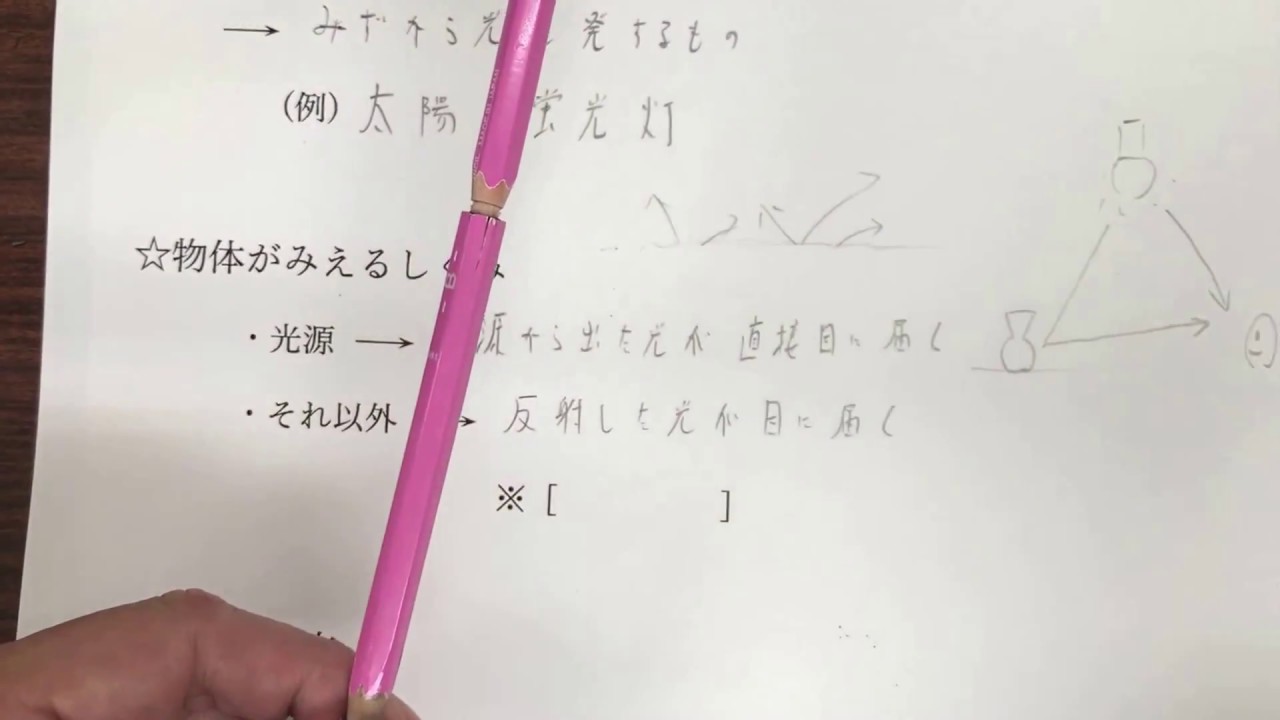 → みずから光 発するもの
(例) 太陽 蛍光灯
☆物体がみえるし
・光源 → 源から出た光が直接目に届く
・それ以外 → 反射した光が目に届く
※[ ]